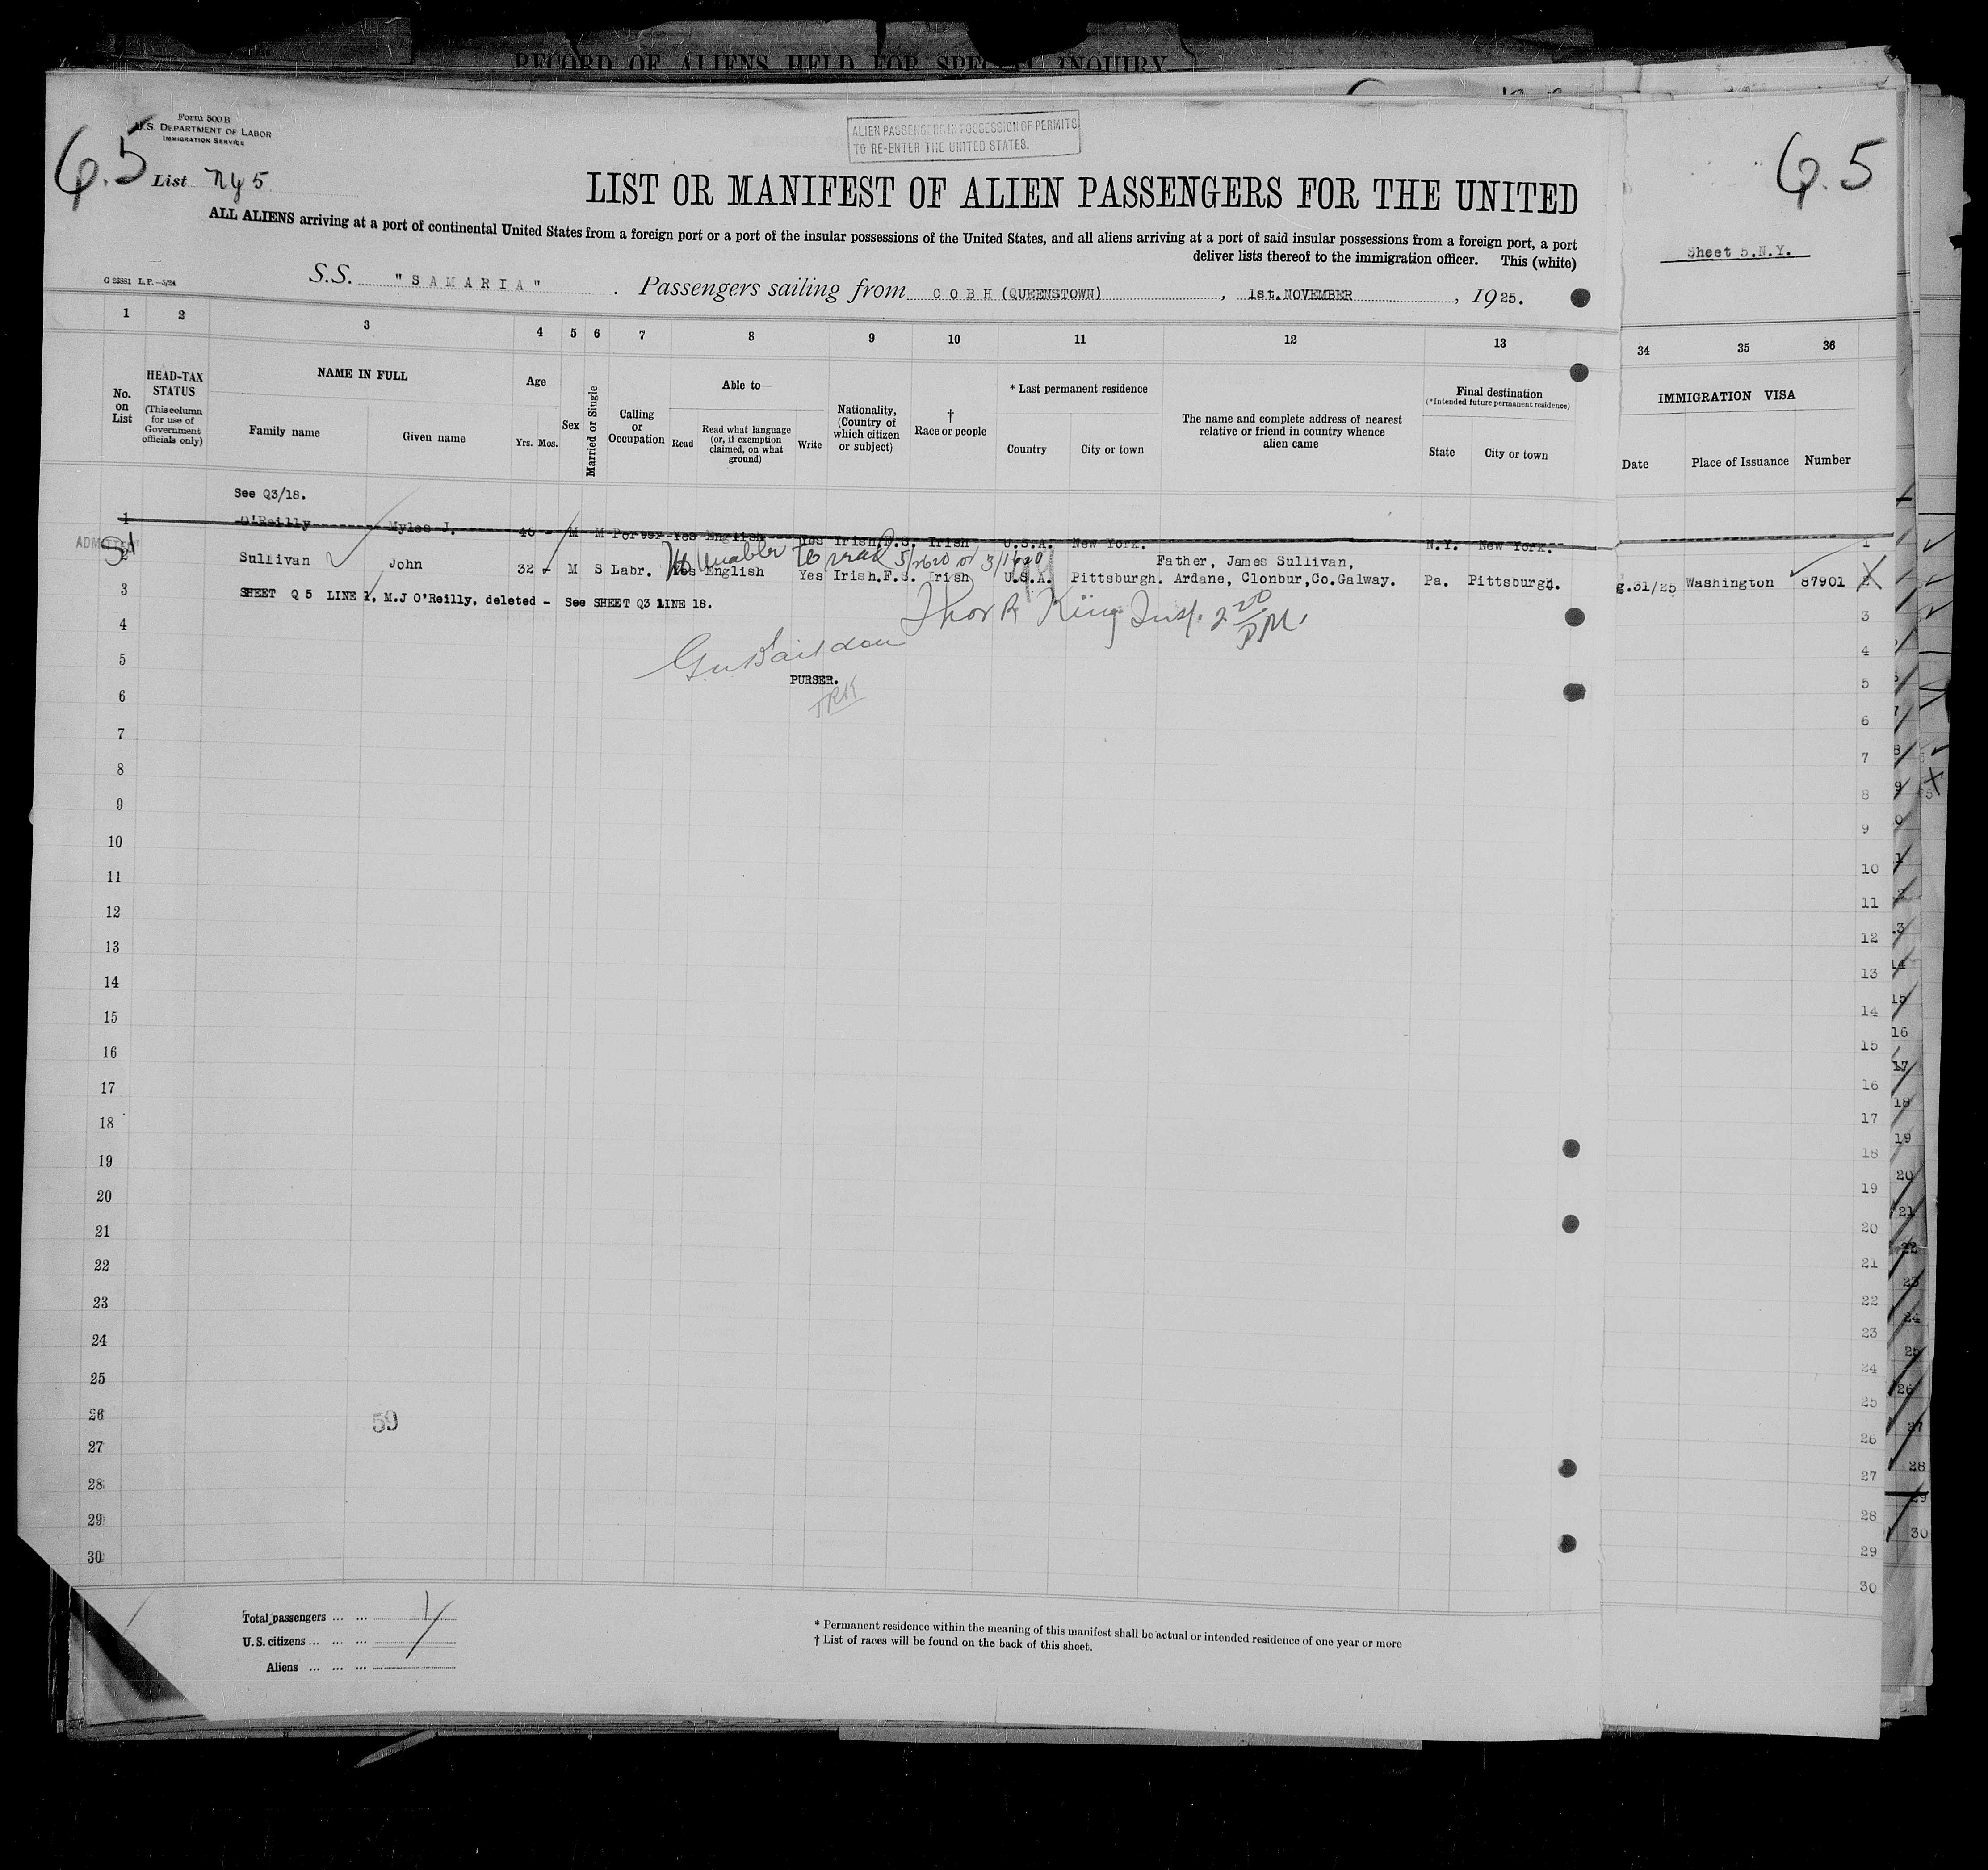 RECORD OF ALIENS HELD FOR SPECIAL INQUIRY
Form 500 B
U.S. DEPARTMENT OF LABOR
IMMIGRATION SERVICE
ALIEN PASSENGERS IN POSSESSION OF PERMITS
TO RE-ENTER THE UNITED STATES.
Q.5
Q.5
List NY 5
LIST OR MANIFEST OF ALIEN PASSENGERS FOR THE UNITED
ALL ALIENS arriving at a port of continental United States from a foreign port or a port of the insular possessions of the United States, and all aliens arriving at a port of said insular possessions from a foreign port, a port
deliver lists thereof to the immigration officer. This (white)
Sheet 5.N.Y.
G 23881 L.P.—5/24
S.S. "SAMARIA". Passengers sailing from COBH (QUEENSTOWN), 1st.NOVEMBER, 1925.
1 2 3 4 5 6 7 8 9 10 11 12 13 34 35 36
No. on List
HEAD-TAX STATUS
(This column for use of Government officials only)
NAME IN FULL
Family name
Given name
Age
Yrs. Mos.
Sex
Married or Single
Calling or Occupation
Able to—
Read
Read what language (or, if exemption claimed, on what ground)
Write
Nationality, (Country of which citizen or subject)
† Race or people
* Last permanent residence
Country
City or town
The name and complete address of nearest relative or friend in country whence alien came
Final destination
(*Intended future permanent residence)
State
City or town
IMMIGRATION VISA
Date
Place of Issuance
Number
See Q3/18.
1 O'Reilly Myles J. 40 - M M Porter Yes English Yes Irish.F.S. Irish U.S.A. New York. N.Y. New York. 1
ADMITTED
unable to read
Father, James Sullivan,
2 Sullivan John 32 - M S Labr. Yes English Yes Irish.F.S. Irish U.S.A. Pittsburgh. Ardane, Clonbur,Co.Galway. Pa. Pittsburgh. g.31/25 Washington 67901 2
3 SHEET Q 5 LINE 1, M.J O'Reilly, deleted - See SHEET Q3 LINE 18. 3
Thor R King Insp. 2 20 PM.
4 4
5 5
PURSER.
TRK
6 6
7 7
8 8
9 9
10 10
11 11
12 12
13 13
14 14
15 15
16 16
17 17
18 18
19 19
20 20
21 21
22 22
23 23
24 24
25 25
26 26
59
27 27
28 28
29 29
30 30
Total passengers ... ...
U.S. citizens ... ... ...
Aliens ... ... ...
* Permanent residence within the meaning of this manifest shall be actual or intended residence of one year or more
† List of races will be found on the back of this sheet.